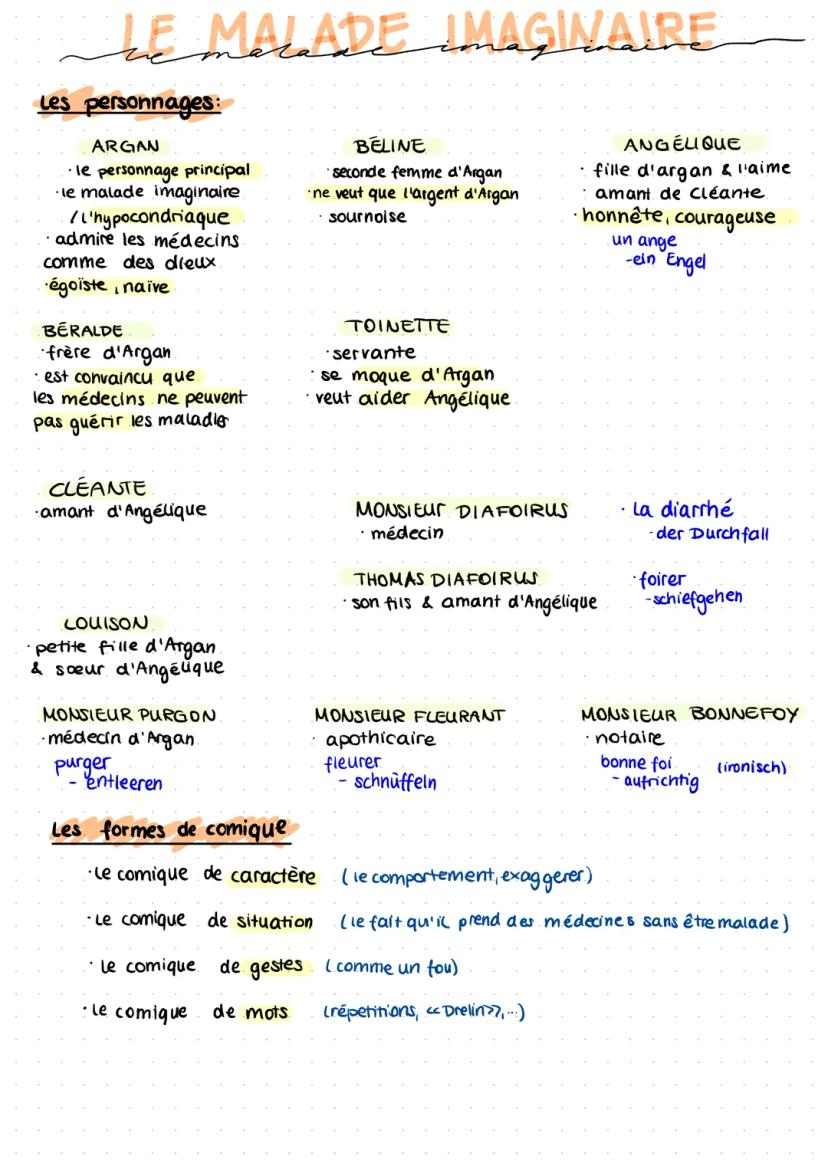 LE MALADE IMAGINAIRE
le malade imaginaire
Les personnages:
ARGAN
· le personnage principal
· le malade imaginaire
/ l'hypocondriaque
· admire les médecins
comme des dieux
· égoïste, naïve
BÉLINE
· seconde femme d'Argan
· ne veut que l'argent d'Argan
· sournoise
ANGÉLIQUE
· fille d'argan & l'aime
· amant de Cléante
· honnête, courageuse
un ange
- ein Engel
BÉRALDE
· frère d'Argan
· est convaincu que
les médecins ne peuvent
pas guérir les maladie
TOINETTE
· servante
· se moque d'Argan
· veut aider Angélique
CLÉANTE
· amant d'Angélique
MONSIEUR DIAFOIRUS
· médecin
· La diarrhé
- der Durchfall
THOMAS DIAFOIRUS
· son fils & amant d'Angélique
· foirer
- schiefgehen
LOUISON
· petite fille d'Argan
& sœur d'Angélique
MONSIEUR PURGON
· médecin d'Argan
purger
- entleeren
MONSIEUR FLEURANT
· apothicaire
fleurer
- schnüffeln
MONSIEUR BONNEFOY
· notaire
bonne foi (ironisch)
- aufrichtig
Les formes de comique
· Le comique de caractère (le comportement, exaggerer)
· Le comique de situation (le fait qu'il prend des médecines sans être malade)
· Le comique de gestes (comme un fou)
· Le comique de mots (répetitions, «Drelin»,...)